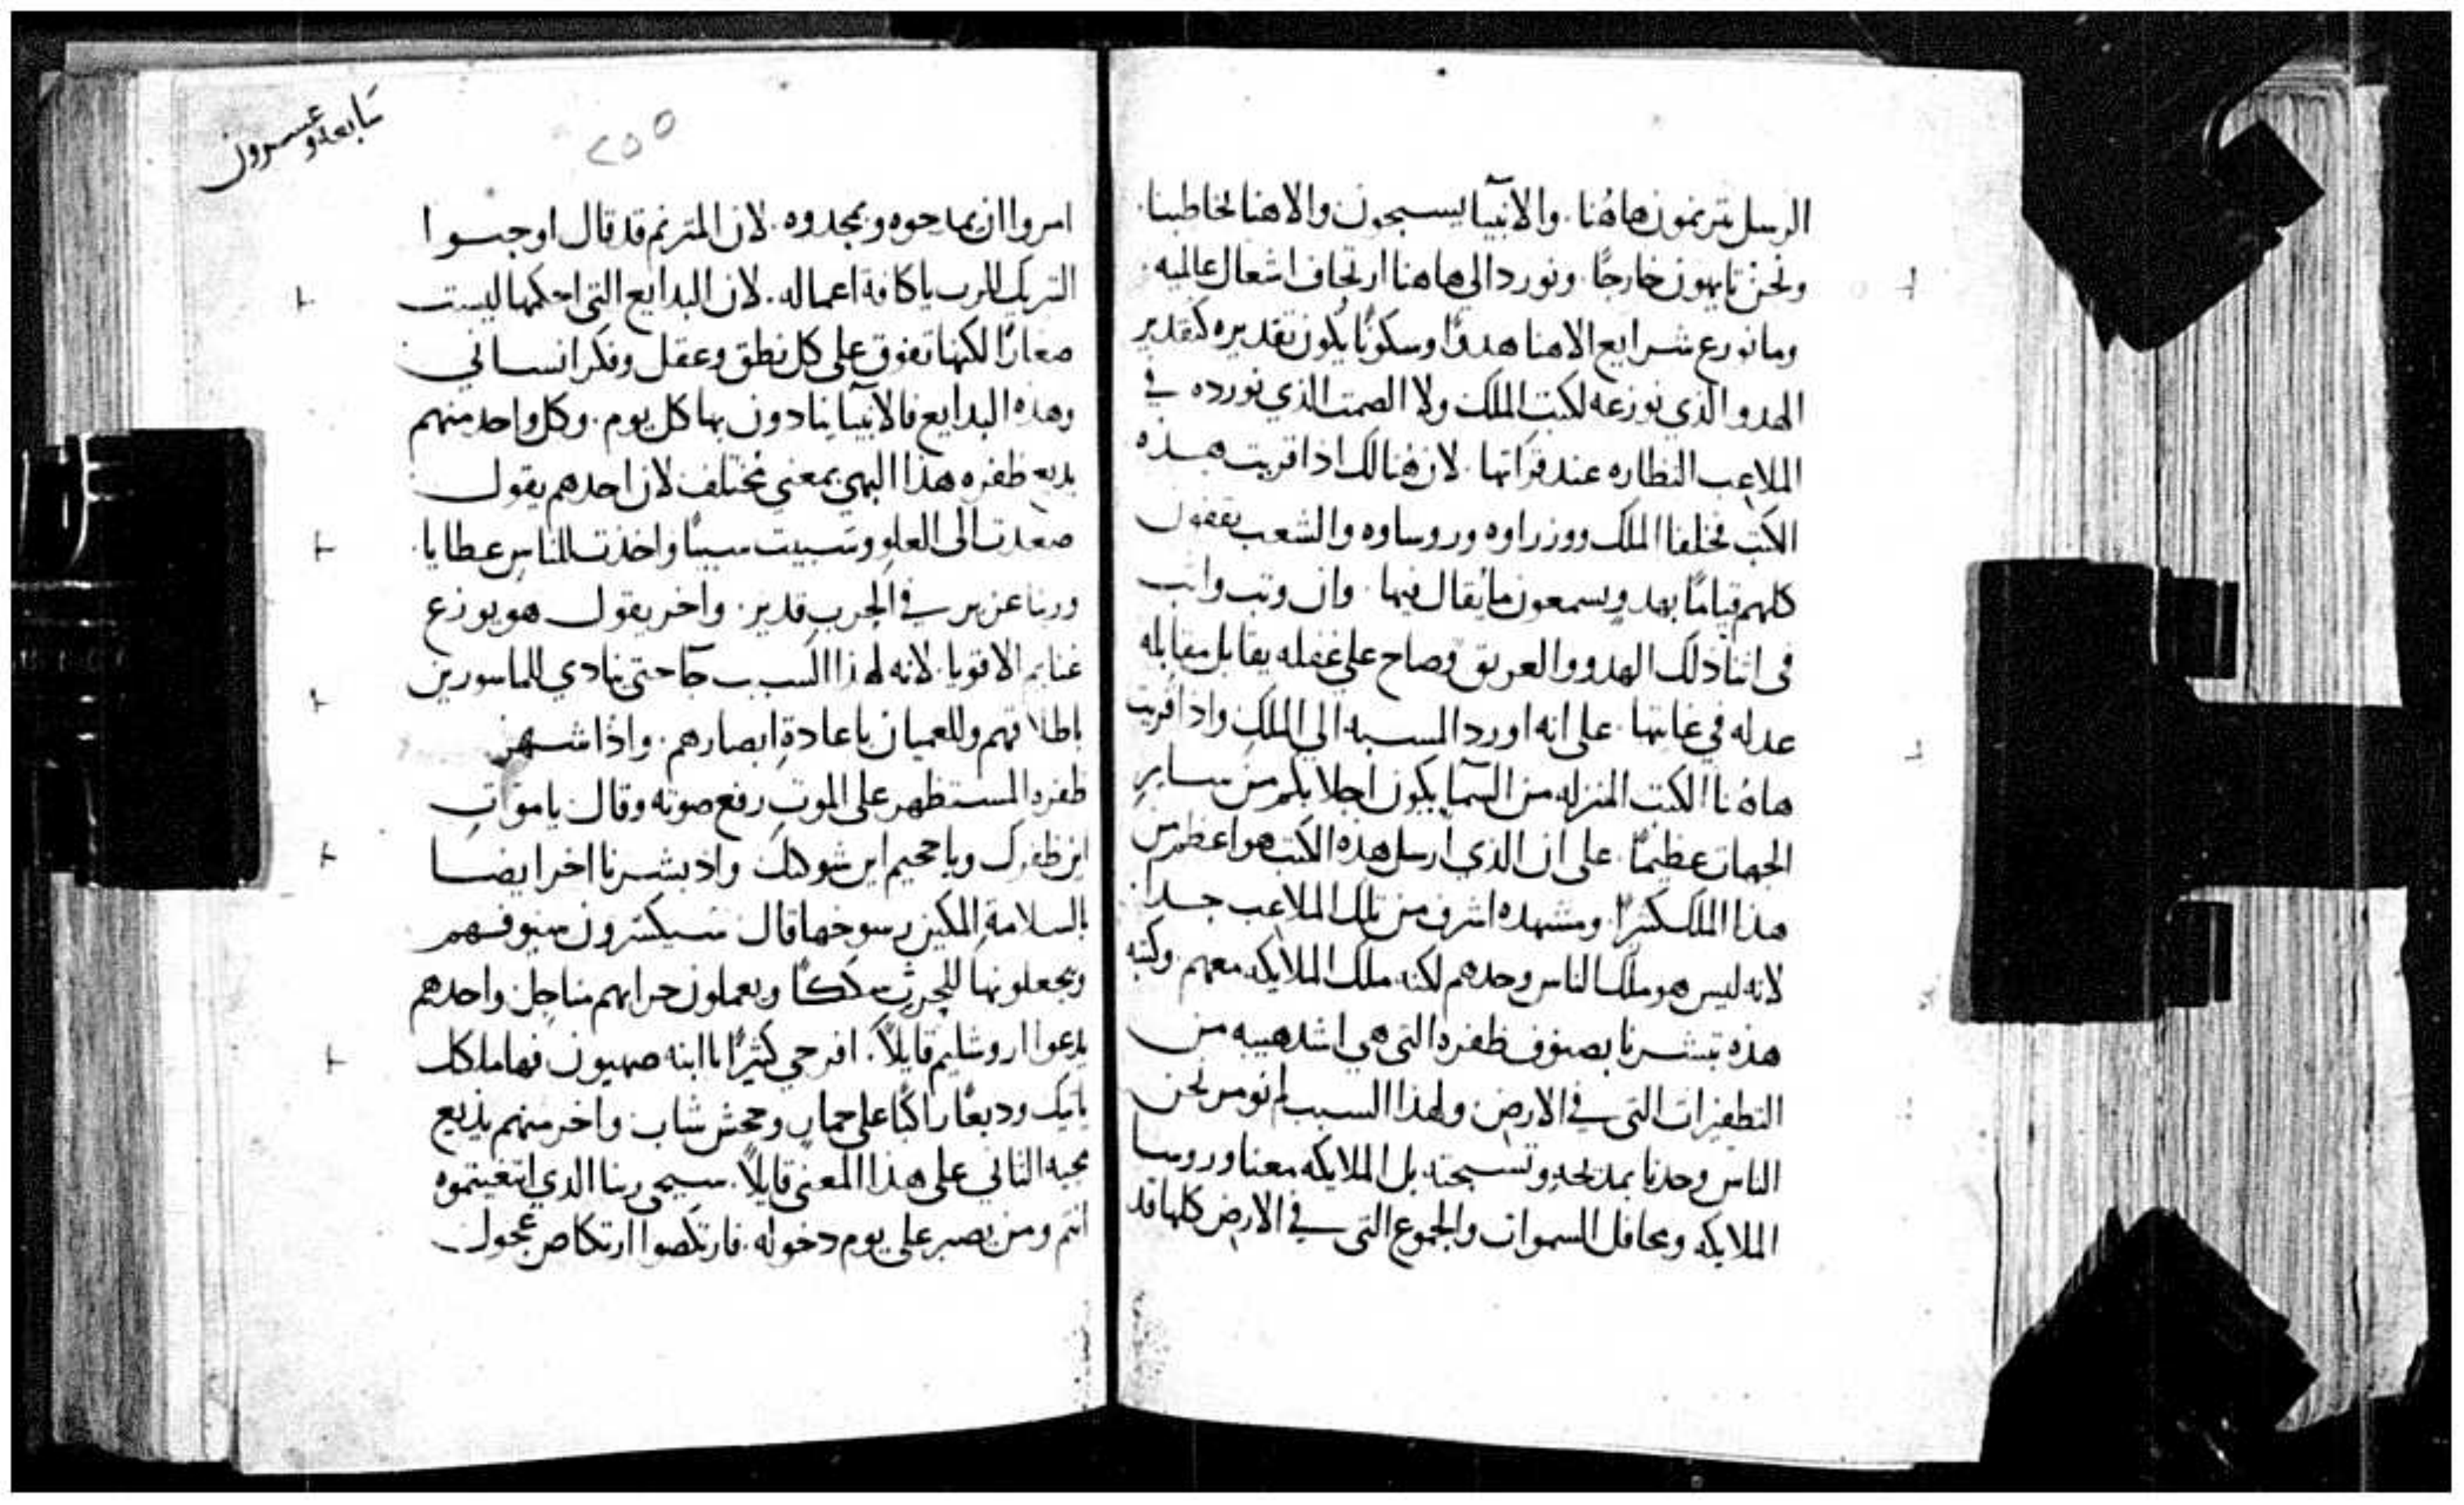 الرسل يترنمون هاهُنا. والانبيآ يسبحون والاهنا يخاطبنا.
ونحن تايهون خارجًا. ونورد الى هاهنا ارتجاف اشعال عالميه.
وما نورع شرايع الاهنا هدوًا وسكونًا يكون تقديره كتقدير
الهدو الذي نوزعه لكتب الملك ولا الصمت الذي نورده في
الملاعب النظاره عند قراتها. لان هنالك اذا قريت هذه
الكتب فخلفا الملك ووزراوه وروساوه والشعب يقفون
كلهم قيامًا بهدوٍ يسمعون ما يُقال فيها. وان وتب واتب
فى اتنا ذلك الهدو والعريق وصاح على غفله يقابل مقابله
عدله في غايتها. على انه اورد المسبه الي الملكِ واذا قريت
هاهُنا الكتب المنزله من السمآ يكون اجلابكم من سايرِ
الجهات عظيمًا. على ان الذي ارسل هذه الكتب هو اعظم من
هذا الملك كثيرًا. ومشهده اشرف من تلك الملاعب جدا.
لانه ليس هو ملك الناس وحدهم لكنه ملك الملايكه معهم. وكتبه
هذه تبشرنا بصنوف ظفره التى هي اشد هيبه من
التظفيرات التى في الارض. ولهذا السبب لم نومر نحن
الناس وحدنا بمديحهِ وتسبحته بل الملايكه معنا وروسا
الملايكه ومحافل السموات والجموع التى في الارض كلها قد
سابعه وعسرون
٢٥٥
امروا ان يمادحوه ويمجدوه. لان المترنم قد قال اوجبوا
التبريك للرب يا كافة اعماله. لان البدايع التى احكمها ليست
صغارًا لكنها تفوق على كل نطق وعقل وفكر انساني
وهذه البدايع فالانبيآ ينادون بها كل يوم. وكل واحد منهم
يذيع ظفره هذا البهي بمعني مختلف لان احدهم يقول
صعدت الى العلوِ وسبيت سبيًا واخذت للناس عطايا.
وربنا عزيز في الحرب قدير. واخر يقول هو يوزع
غنايم الاقويا. لانه لهذا السبب جآ حتى ينادي للماسورين
باطلاقهم وللعميان باعادةِ ابصارهم. واذا شهر
ظفره المستظهر على الموتِ رفع صوته وقال يا مواتِ
اين ظفرك ويا جحيم اين شوكتك واذ بشرنا اخر ايضا
بالسلامةِ المكين رسوخها قال سيكسرون سيوفهم
ويجعلونها للحرثِ سككًا ويعملون حرابهم مناجل واحدهم
يدعوا اروشليم قايلاً. افرحي كثيرًا يا ابنه صهيون فها ملكك
ياتيك وديعًا راكبًا على حمارٍ وجحش شاب واخر منهم يذيع
مجيه التاني على هذا المعنى قايلاً. سيجى ربنا الذي ابتغيتموه
انتم ومن يصبر على يوم دخوله. فارتكضوا ارتكاض عجول